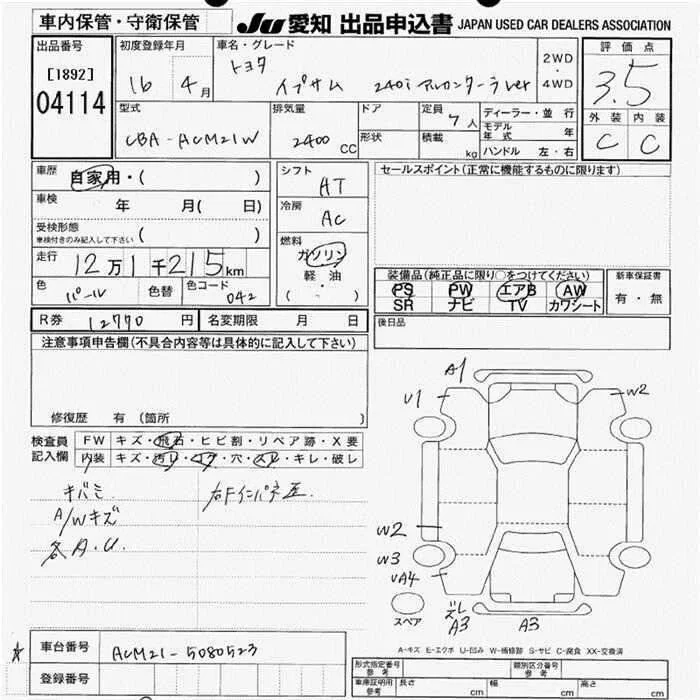 車内保管・守衛保管 JU 愛知 出品申込書 JAPAN USED CAR DEALERS ASSOCIATION
出品番号 初度登録年月 車名・グレード 評価点
[1892] 16 年 4 月 トヨタ イプサム 240i アルカンターラver 2WD・4WD 3.5
04114 型式 排気量 ドア 定員 7人 ディーラー・並行 外装 内装
CBA-ACM21W 2400 CC 形状 積載 kg モデル年式 年 C C
ハンドル 左・右
車歴 自家用・( ) シフト AT セールスポイント(正常に機能するものに限ります)
車検 年 月( 日) 冷房 AC
受検形態 ( )
車検付きのみ記入して下さい
走行 12万1千215km 燃料 ガソリン
軽・油
( ・ )
装備品(純正品に限り○をつけてください) 新車保証書
色 パール 色替 色コード 042 PS PW エアB AW 有・無
SR ナビ TV カワシート
R券 12770 円 名変期限 月 日 後日品
注意事項申告欄(不具合内容等は具体的に記入して下さい)
修復歴 有(箇所 )
検査員 FW キズ・飛石・ヒビ割・リペア跡・X要
記入欄 内装 キズ・汚レ・コゲ・穴・スレ・キレ・破レ
キバミ 右Fインパネ歪
A/Wキズ
各A.U.
A1
U1 W2
W2
W3
UA4
ズレ
A3 A3
スペア
A-キズ E-エクボ U-凹み W-補修跡 S-サビ C-腐食 XX-交換済
車台番号 ACM21-5080523
登録番号
形式指定番号 参考 類別区分番号
車庫証明用 参考 長さ cm 幅 cm 高さ cm